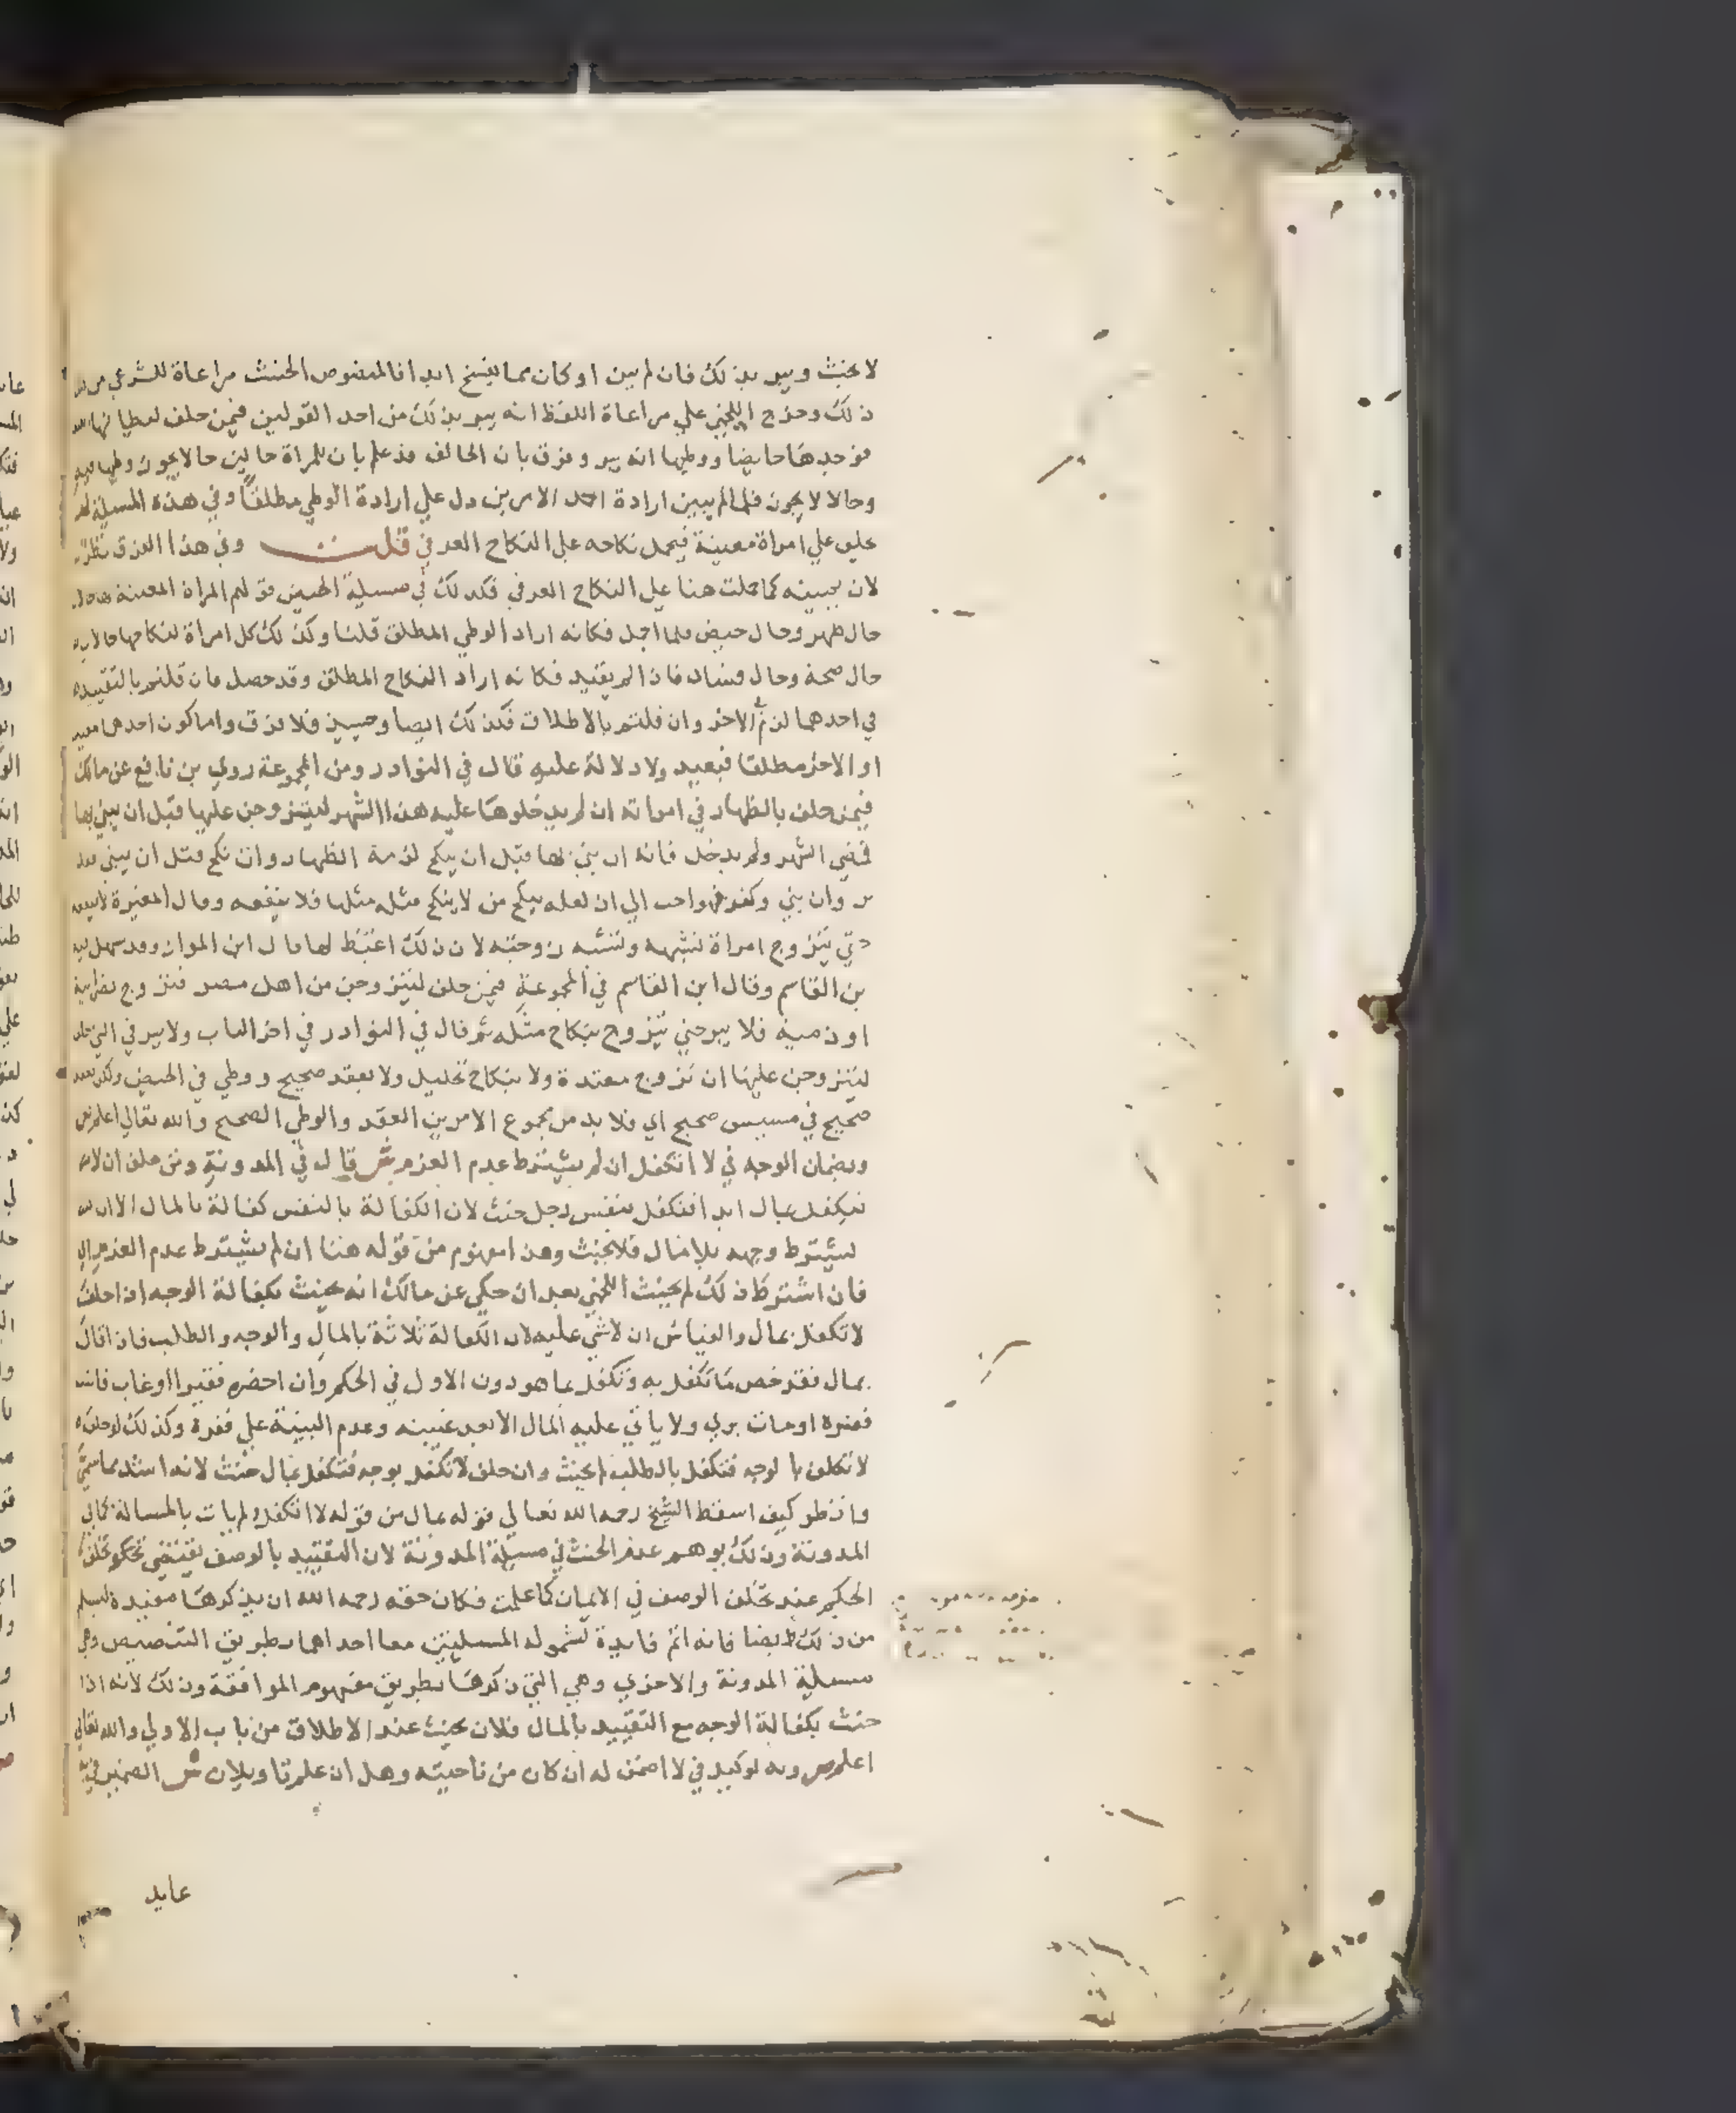 لا يحنث ويبر بذلك فان لم يبن او كان مما يفسخ ابدا فالمنصوص الحنث مراعاة للشرعي من
ذلك وخرج اللخمي علي مراعاة اللفظ انه يبر بذلك من احد القولين فيمن حلف ليطانها
فوجدها حايضا ووطيها انه يبر وفرق بان الحالف قد علم بان للمراة حالين حالا يجوز وطيها فيه
وحالا لا يجوز فلما لم يبين ارادة احد الامرين دل علي ارادة الوطي مطلقا وفي هذه المسيلة
حلف علي امراة معينة فيحمل نكاحه علي النكاح العرفي قلت وفي هذا الفرق نظر
لان يمينه كما حملت هنا علي النكاح العرفي فكذلك في مسيلة الحيض قولهم المراة المعينة
حال طهر وحال حيض فلما اجمل فكانه اراد الوطي المطلق قلنا وكذلك كل امراة لنكاحها حالان
حال صحة وحال فساد فاذا لم يقيد فكانه اراد النكاح المطلق وقد حصل فان قلتم بالتقييد
في احدهما لزم في الاخر وان قلتم بالاطلاق فكذلك ايضا وحينيذ فلا فرق واما كون احدهما مقيد
او الاخر مطلقا فبعيد ولا دلالة عليه قال في النوادر ومن المجموعة روي بن نافع عن مالك
فيمن حلف بالظهار في امراته ان لم يدخلوها عليه هذا الشهر ليتزوجن عليها قبل ان يبني بها
فمضي الشهر ولم يدخل فانه ان بني بها قبل ان ينكح لزمة الظهار وان نكح قبل ان يبني فقد
بر وان بني وكفر فهو احب الي ان لعله ينكح من لا ينكح مثله مثلها فلا ينفعه وقال المغيرة
حتي يتزوج امراة تشبهه وتشبه زوجته لان ذلك اغيظ لها قال ابن المواز وقد سهل فيه
بن القاسم وقال ابن القاسم في المجموعة فيمن حلف ليتزوجن من اهل مصر فتزوج نصرانية
او ذمية فلا يبر حتي يتزوج بنكاح مثله ثم قال في النوادر في اخر الباب ولا يبر في التي حلف
ليتزوجن عليها ان تزوج معتدة ولا بنكاح تحليل ولا بعقد صحيح ووطي في الحيض ولكن بعقد
صحيح في مسيس صحيح اي فلا بد من مجموع الامرين العقد والوطي الصحيح والله تعالي اعلم ص
وبضمان الوجه في لا اتكفل ان لم يشترط عدم الغرم ش قال في المدونة ومن حلف ان لا
يتكفل بمال ابدا فتكفل بنفس رجل حنث لان الكفالة بالنفس كفالة بالمال الا ان
يشترط وجهه بلا مال فلا يحنث وهذا مفهوم من قوله هنا ان لم يشترط عدم الغرم اي
فان اشترط ذلك لم يحنث اللخمي بعد ان حكي عن مالك انه يحنث بكفالة الوجه اذا حلف
لا تكفل بمال والقياس ان لا شي عليه لان الكفالة ثلاثة بالمال والوجه والطلب فاذا قال
بمال فقد خص ما تكفل به وتكفل بما هو دون الاول في الحكم وان احضره فقيرا او غاب فاثبت
فقره او مات بري ولا ياتي عليه المال الا بعد غيبته وعدم البينة علي فقره وكذلك لو حلف
لا تكلف بالوجه فتكفل بالطلب لم يحنث وان حلف لا تكفل بوجه فتكفل بمال حنث لانه اشد مما سمي
وانظر كيف اسقط الشيخ رحمه الله تعالي قوله بمال من قوله لا اتكفل ولم يات بالمسالة كما في
المدونة وذلك يوهم عدم الحنث في مسيلة المدونة لان التقييد بالوصف يقتضي تخلف
الحكم عند تخلف الوصف في الايمان كما علمت فكان حقه رحمه الله ان يذكرها مقيدة ليسلم
من ذلك ايضا فانه اتم فايدة لشموله المسيلتين معا احداهما بطريق التنصيص وهي
مسيلة المدونة والاخري وهي التي ذكرها بطريق مفهوم الموافقة وذلك لانه اذا
حنث بكفالة الوجه مع التقييد بالمال فلان يحنث عند الاطلاق من باب الاولي والله تعالي
اعلم ص وبه لوكيد في لا اضمن له ان كان من ناحيته وهل ان علم تاويلان ش الضمير في به
عايد